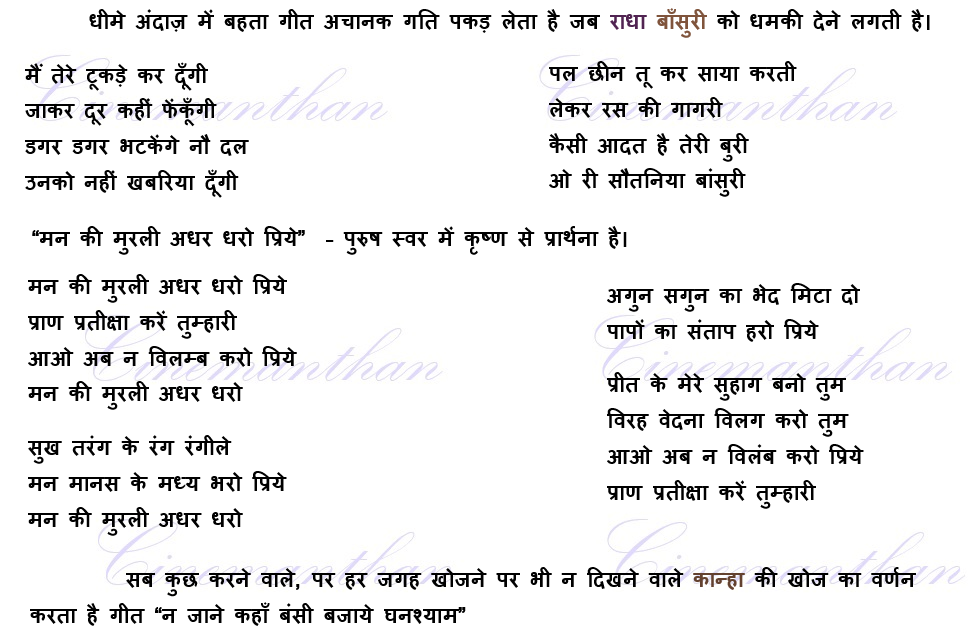 धीमे अंदाज़ में बहता गीत अचानक गति पकड़ लेता है जब राधा बाँसुरी को धमकी देने लगती है।
मैं तेरे टूकड़े कर दूँगी
जाकर दूर कहीं फेंकूँगी
डगर डगर भटकेंगे नौ दल
उनको नहीं खबरिया दूँगी
पल छीन तू कर साया करती
लेकर रस की गागरी
कैसी आदत है तेरी बुरी
ओ री सौतनिया बांसुरी
“मन की मुरली अधर धरो प्रिये” – पुरुष स्वर में कृष्ण से प्रार्थना है।
मन की मुरली अधर धरो प्रिये
प्राण प्रतीक्षा करें तुम्हारी
आओ अब न विलम्ब करो प्रिये
मन की मुरली अधर धरो
सुख तरंग के रंग रंगीले
मन मानस के मध्य भरो प्रिये
मन की मुरली अधर धरो
अगुन सगुन का भेद मिटा दो
पापों का संताप हरो प्रिये
प्रीत के मेरे सुहाग बनो तुम
विरह वेदना विलग करो तुम
आओ अब न विलंब करो प्रिये
प्राण प्रतीक्षा करें तुम्हारी
सब कुछ करने वाले, पर हर जगह खोजने पर भी न दिखने वाले कान्हा की खोज का वर्णन
करता है गीत “न जाने कहाँ बंसी बजाये घनश्याम”
Cinemanthan
Cinemanthan
Cinemanthan
Cinemanthan
Cinemanthan
Cinemanthan